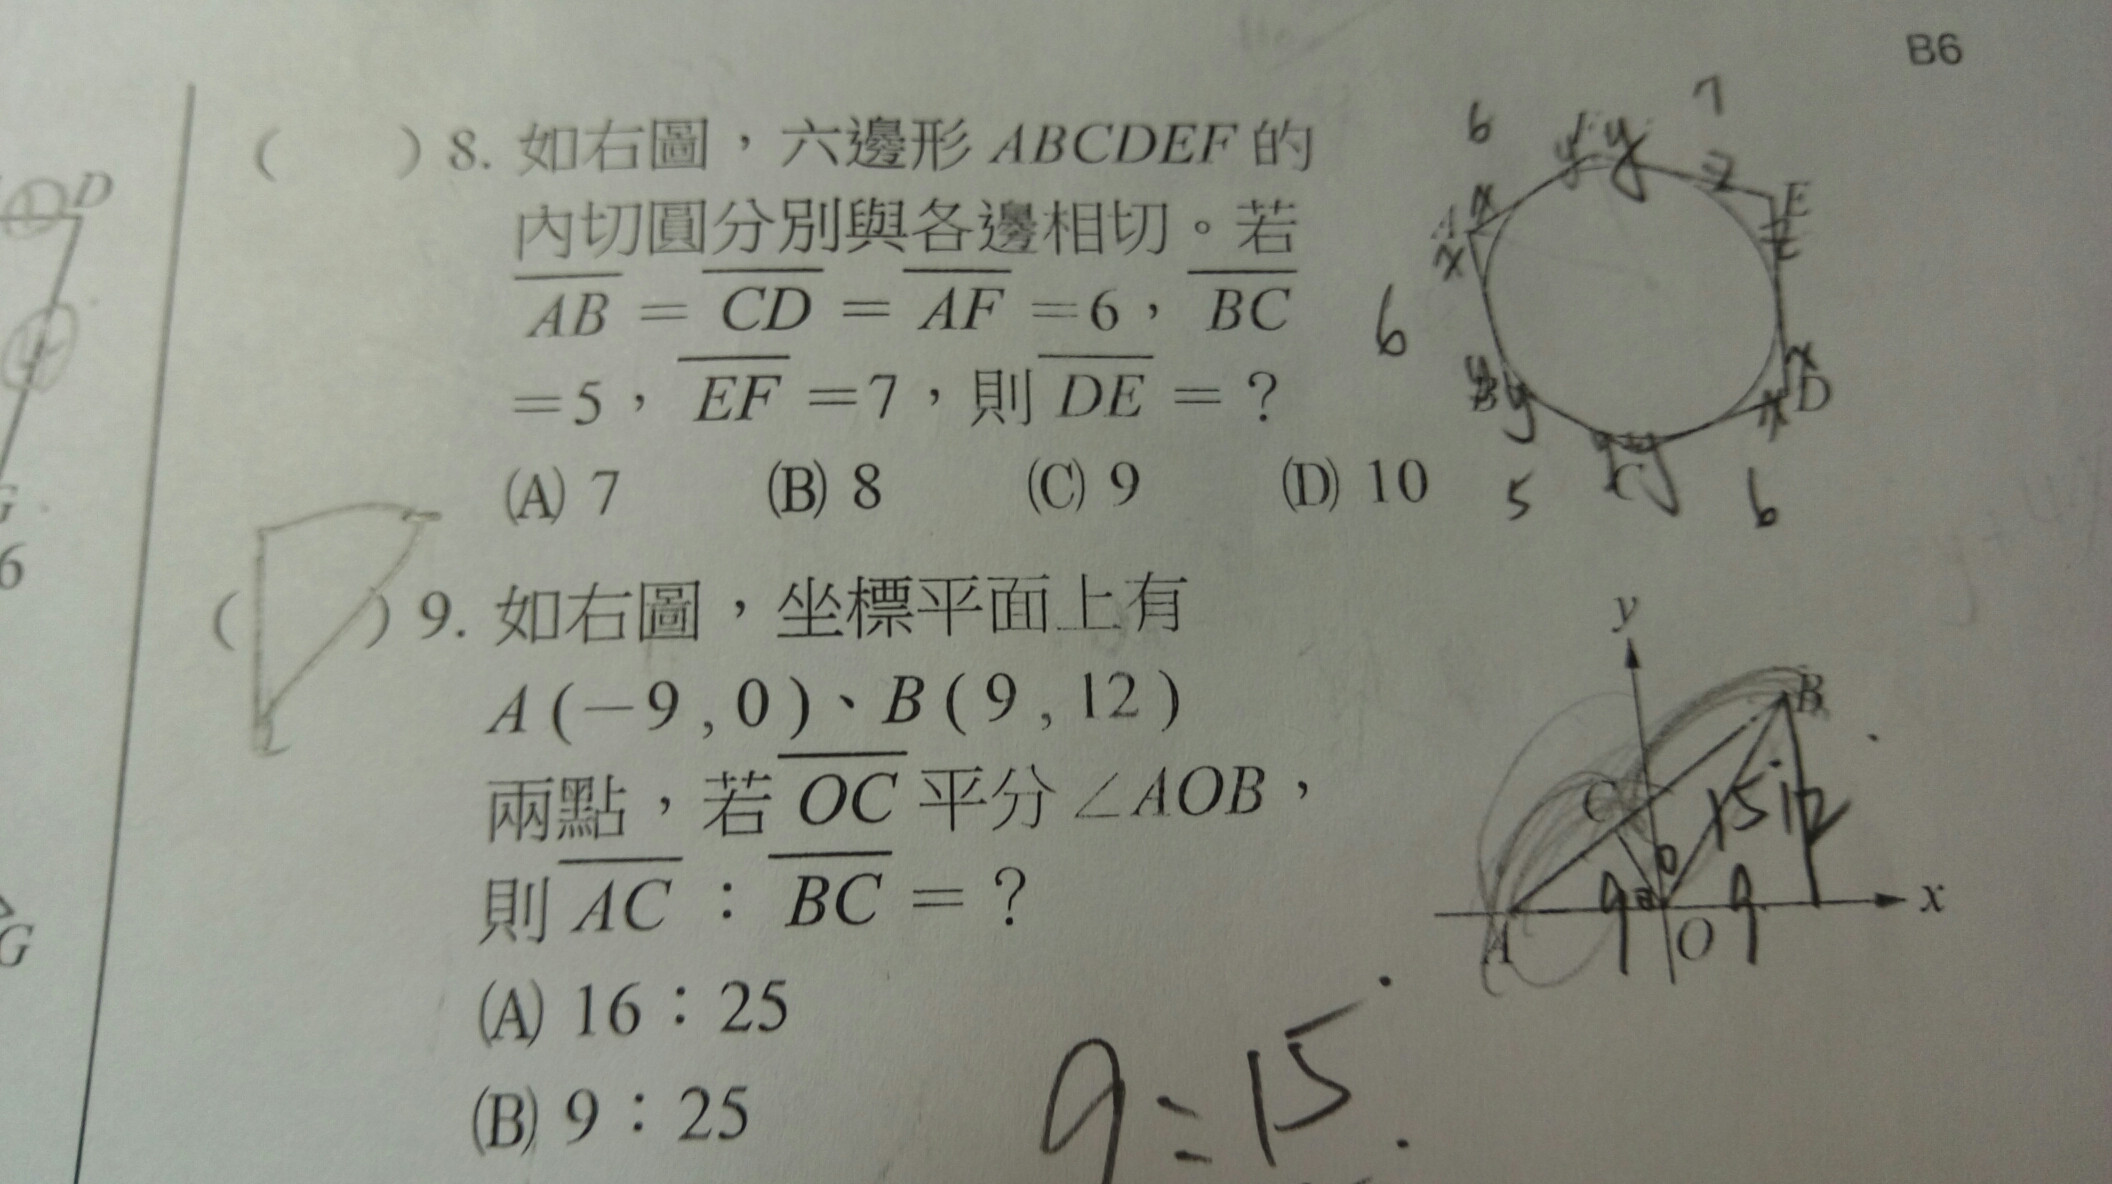 B6
(　　) 8. 如右圖，六邊形 ABCDEF 的
內切圓分別與各邊相切。若
AB = CD = AF =6， BC
=5， EF =7，則 DE = ?
(A) 7　(B) 8　(C) 9　(D) 10
6
7
x
y
y
z
A
E
x
z
6
x
y
B
y
D
x
5
C
y
6
(　　) 9. 如右圖，坐標平面上有
A (−9 , 0 )、B ( 9 , 12 )
兩點，若 OC 平分 ∠AOB，
則 AC ： BC = ?
(A) 16：25
(B) 9：25
y
B
C
15
12
9
9
x
A
O
9 = 15
D
G
6
G